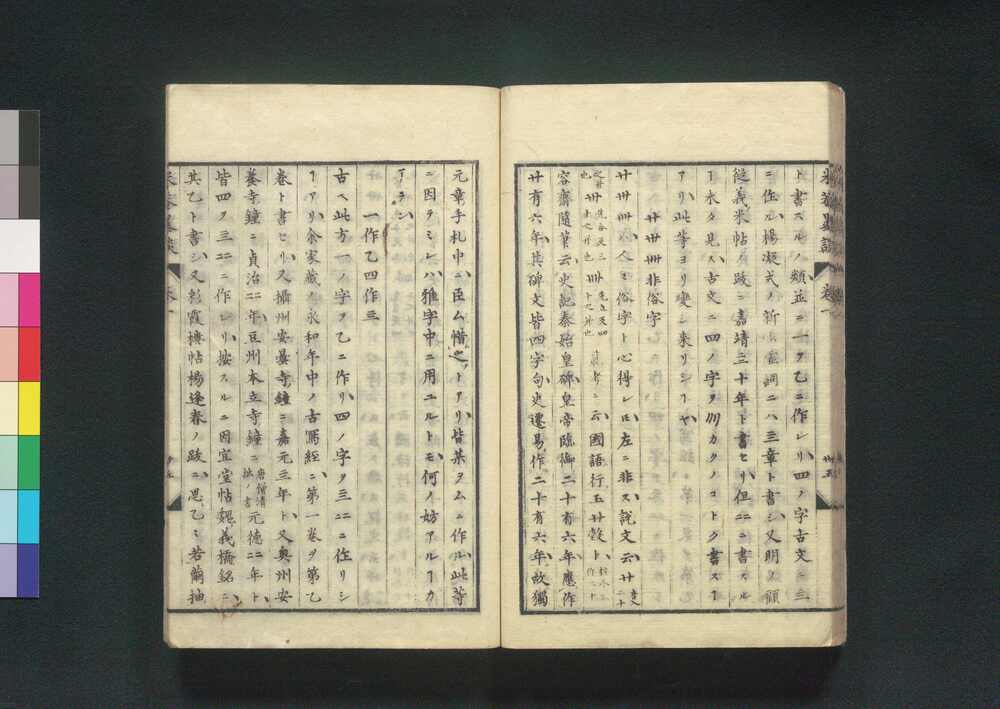 米菴墨談 巻一
ト書スルノ類並ニ一ヲ乙ニ作レリ四ノ字古文ニ亖
ニ作ル楊凝式ノ新步虛詞ニハ三章ト書シ又明ノ顧
從義米帖ノ跋ニ嘉靖三十年ト書セリ但二ニ書スル
ヿ未タ見ス古文ニ四ノ字ヲ〣カクノコトク書スヿ
アリ此等ヨリ變シ来リシニヤ
廿卅卌非俗字
廿卅卌人々俗字ト心得レ𪜈左ニ非ス說文云廿
卅 卌 云國語行玉廿瑴ト
容齋隨筆云史記秦始皇碑皇帝臨御二十有六年應作
廿有六年其碑文皆四字句史遷易作二十有六年故獨
元章手札中ニ臣ム惜之トアリ皆某ヲムニ作ル此等
ニ因テミレハ雅字中ニ用ユルトモ何ノ妨アルヿカ
アラン
一作乙四作三
古ヘ此方一ノ字ヲ乙ニ作リ四ノ字ヲ三ニニ作リシ
ヿアリ余家蔵ノ永和年中ノ古寫経ニ第一巻ヲ第乙
巻ト書セリ又攝州安曇寺鐘ニ嘉元三年ト又奥州安
養寺鐘ニ貞治二年豆州本立寺鐘ニ元德二年ト
皆四ヲ三ニニ作レリ按スルニ因宜堂帖魏義橋銘ニ
其乙ト書シ又彩霞樓帖楊逢春ノ跋ニ思乙ミ若繭抽